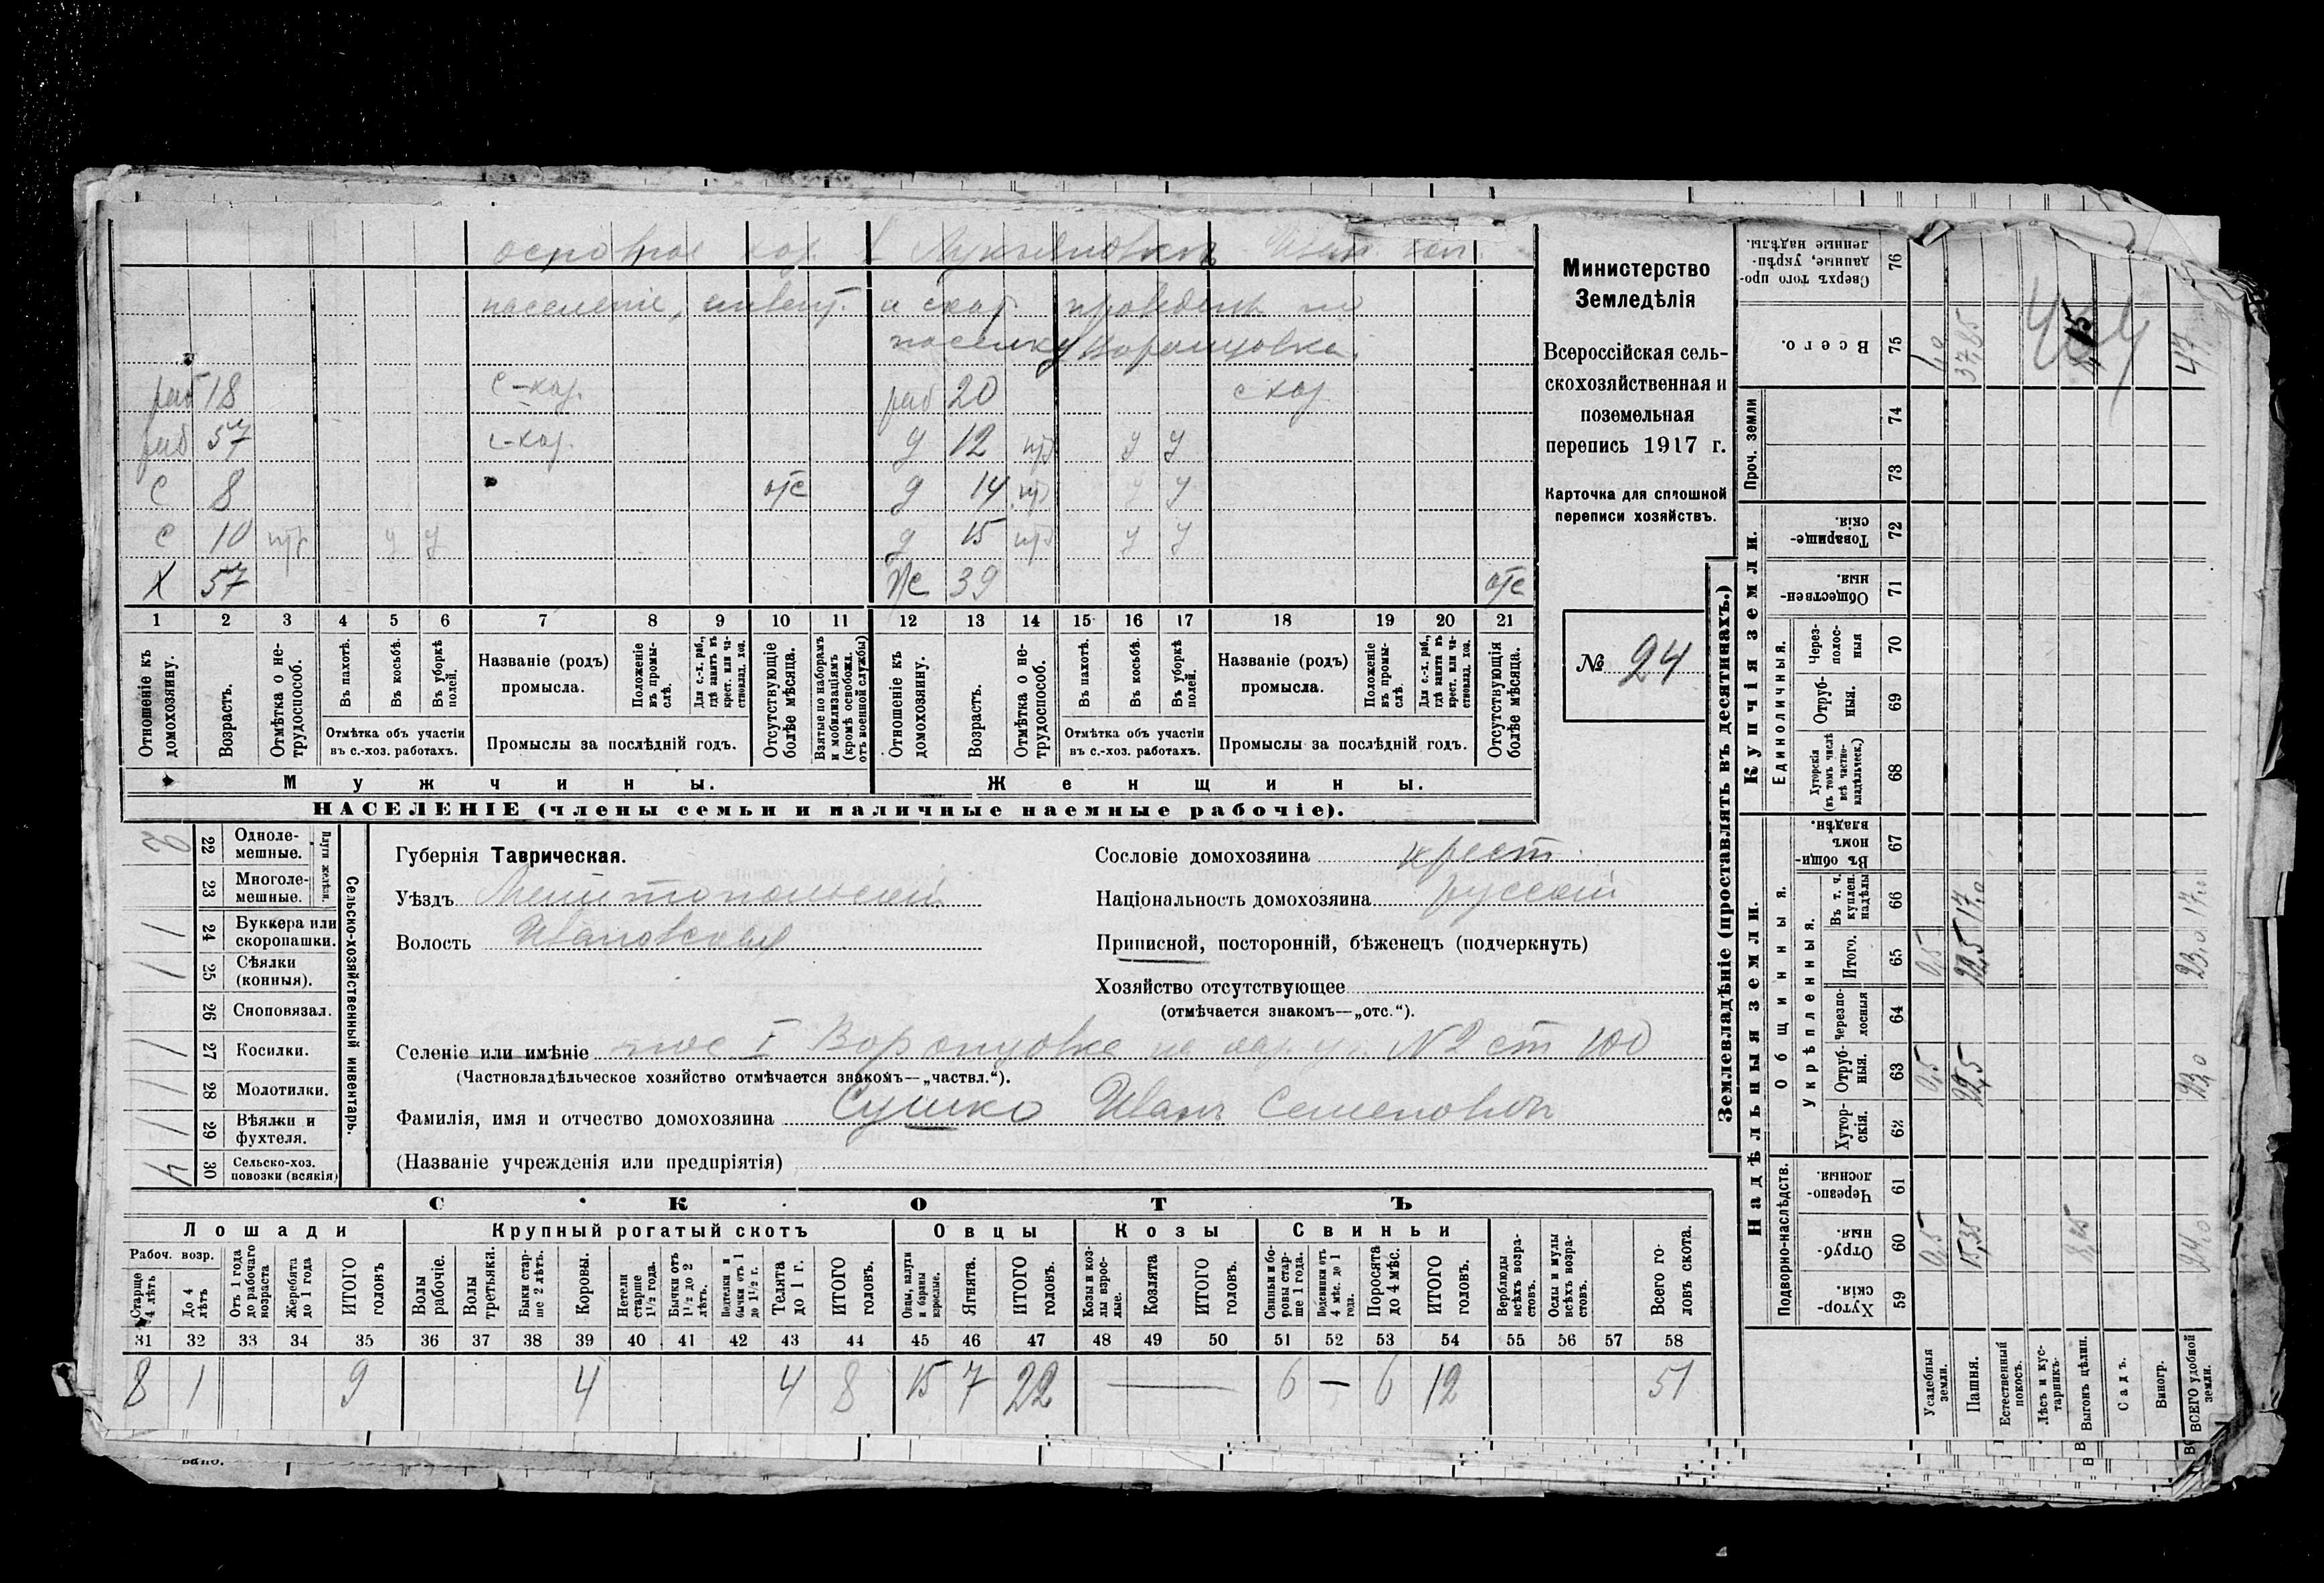 основное хоз. Лукьяновкъ
населеніе, инвент. и скот проведенъ по
поселку Воронцовка.
раб 18 с-хоз. раб 20 с хоз.
раб 57 с-хоз. д 12 у у
с 8 отс д 14 у у
с 10 у у д 15 у у
Х 57 ж 39 отс
1 2 3 4 5 6 7 8 9 10 11 12 13 14 15 16 17 18 19 20 21
Отношеніе къ домохозяину.
Возрастъ.
Отмѣтка о не-
трудоспособ.
Въ пахотѣ.
Въ косьбѣ.
Въ уборкѣ
полей.
Отмѣтка объ участіи
въ с.-хоз. работахъ.
Названіе (родъ)
промысла.
Положеніе
въ промы-
слѣ.
Для с.-х. раб.,
гдѣ занятъ въ
крест. или ча-
стновлад. хоз.
Промыслы за послѣдній годъ.
Отсутствующіе
болѣе мѣсяца.
Взятые по наборамъ
и мобилизаціямъ
(кромѣ освобожд.
отъ военной службы)
Отношеніе къ
домохозяину.
Возрастъ.
Отмѣтка о не-
трудоспособ.
Въ пахотѣ.
Въ косьбѣ.
Въ уборкѣ
полей.
Отмѣтка объ участіи
въ с.-хоз. работахъ.
Названіе (родъ)
промысла.
Положеніе
въ промы-
слѣ.
Для с.-х. раб.,
гдѣ занята въ
крест. или ча-
стновлад. хоз.
Промыслы за послѣдній годъ.
Отсутствующія
болѣе мѣсяца.
Мужчины.
Женщины.
НАСЕЛЕНІЕ (члены семьи и наличные наемные рабочіе).
Министерство
Земледѣлія
Всероссійская сель-
скохозяйственная и
поземельная
перепись 1917 г.
Карточка для сплошной
переписи хозяйствъ.
№ 24
Сельско-хозяйственный инвентарь.
Плуги желѣзн.
2 22 Одноле-
мешные.
23 Многоле-
мешные.
1 24 Буккера или
скоропашки.
1 25 Сѣялки
(конныя).
26 Сноповязал.
1 27 Косилки.
1 28 Молотилки.
1 29 Вѣялки и
фухтеля.
4 30 Сельско-хоз.
повозки (всякія)
Губернія Таврическая.
Уѣздъ Мелитопольскій
Волость Ивановская
Сословіе домохозяина крест.
Національность домохозяина русскій
Приписной, посторонній, бѣженецъ (подчеркнуть)
Хозяйство отсутствующее
(отмѣчается знакомъ—„отс.“).
Селеніе или имѣніе пос I Воронцовка №2 ст 100
(Частновладѣльческое хозяйство отмѣчается знакомъ—„частвл.“).
Фамилія, имя и отчество домохозяина Сушко Иванъ Семеновичъ
(Названіе учрежденія или предпріятія)
СКОТЪ
Лошади
Крупный рогатый скотъ
Овцы
Козы
Свиньи
Рабоч. возр.
Старше
4 лѣтъ
До 4
лѣтъ
Отъ 1 года
до рабочаго
возраста
Жеребята
до 1 года
ИТОГО
головъ
Волы
рабочіе.
Волы
третьяки.
Быки стар-
ше 2 лѣтъ.
Коровы.
Нетели
старше
1½ года.
Бычки отъ
1½ до 2
лѣтъ.
Подтелки и
бычки отъ 1
до 1½ г.
Телята
до 1 г.
ИТОГО
головъ.
Овцы, валухи
и бараны
взрослые.
Ягнята.
ИТОГО
головъ.
Козы и коз-
лы взрос-
лые.
Козлята
ИТОГО
головъ.
Свиньи и бо-
ровы стар-
ше 1 года.
Подсвинки отъ
4 мѣс. до 1
года.
Поросята
до 4 мѣс.
ИТОГО
головъ.
Верблюды
всѣхъ возра-
стовъ.
Ослы и мулы
всѣхъ возра-
стовъ.
Всего го-
ловъ скота.
31 32 33 34 35 36 37 38 39 40 41 42 43 44 45 46 47 48 49 50 51 52 53 54 55 56 57 58
8 1 9 4 4 8 15 7 22 — 6 — 6 12 51
Землевладѣніе (проставлять въ десятинахъ.)
Надѣльныя земли.
Купчія земли.
Проч. земли
Подворно-наслѣдств.
Общинныя.
Укрѣпленныя.
Единоличныя.
76 Сверхъ того про-
данные, укрѣп-
ленные надѣлы.
75 Всего. 1,0 37,85 47
74
73
72 Товарище-
скія.
71 Обществен-
ныя.
70 Через-
полос-
ныя
69 Отруб-
ныя.
68 Хуторскія
(въ томъ числѣ
всѣ частно-
владѣльческ.)
67 Въ общи-
номъ
владѣн.
66 Въ т. ч.
куплен.
надѣлы 17,0
65 Итого. 0,5 22,5 23,0
64 Черезпо-
лосныя
63 Отруб-
ныя. 0,5 22,5 23,0
62 Хутор-
скія.
61 Черезпо-
лосныя
60 Отруб-
ныя. 0,5 15,35 8,15 24,0
59 Хутор-
скія.
Усадебныя
земли.
Пашня.
Естественный
покосъ.
Лѣсъ и кус-
тарникъ.
Выгонъ цѣлин.
Садъ.
Виногр.
ВСЕГО удобной
земли.